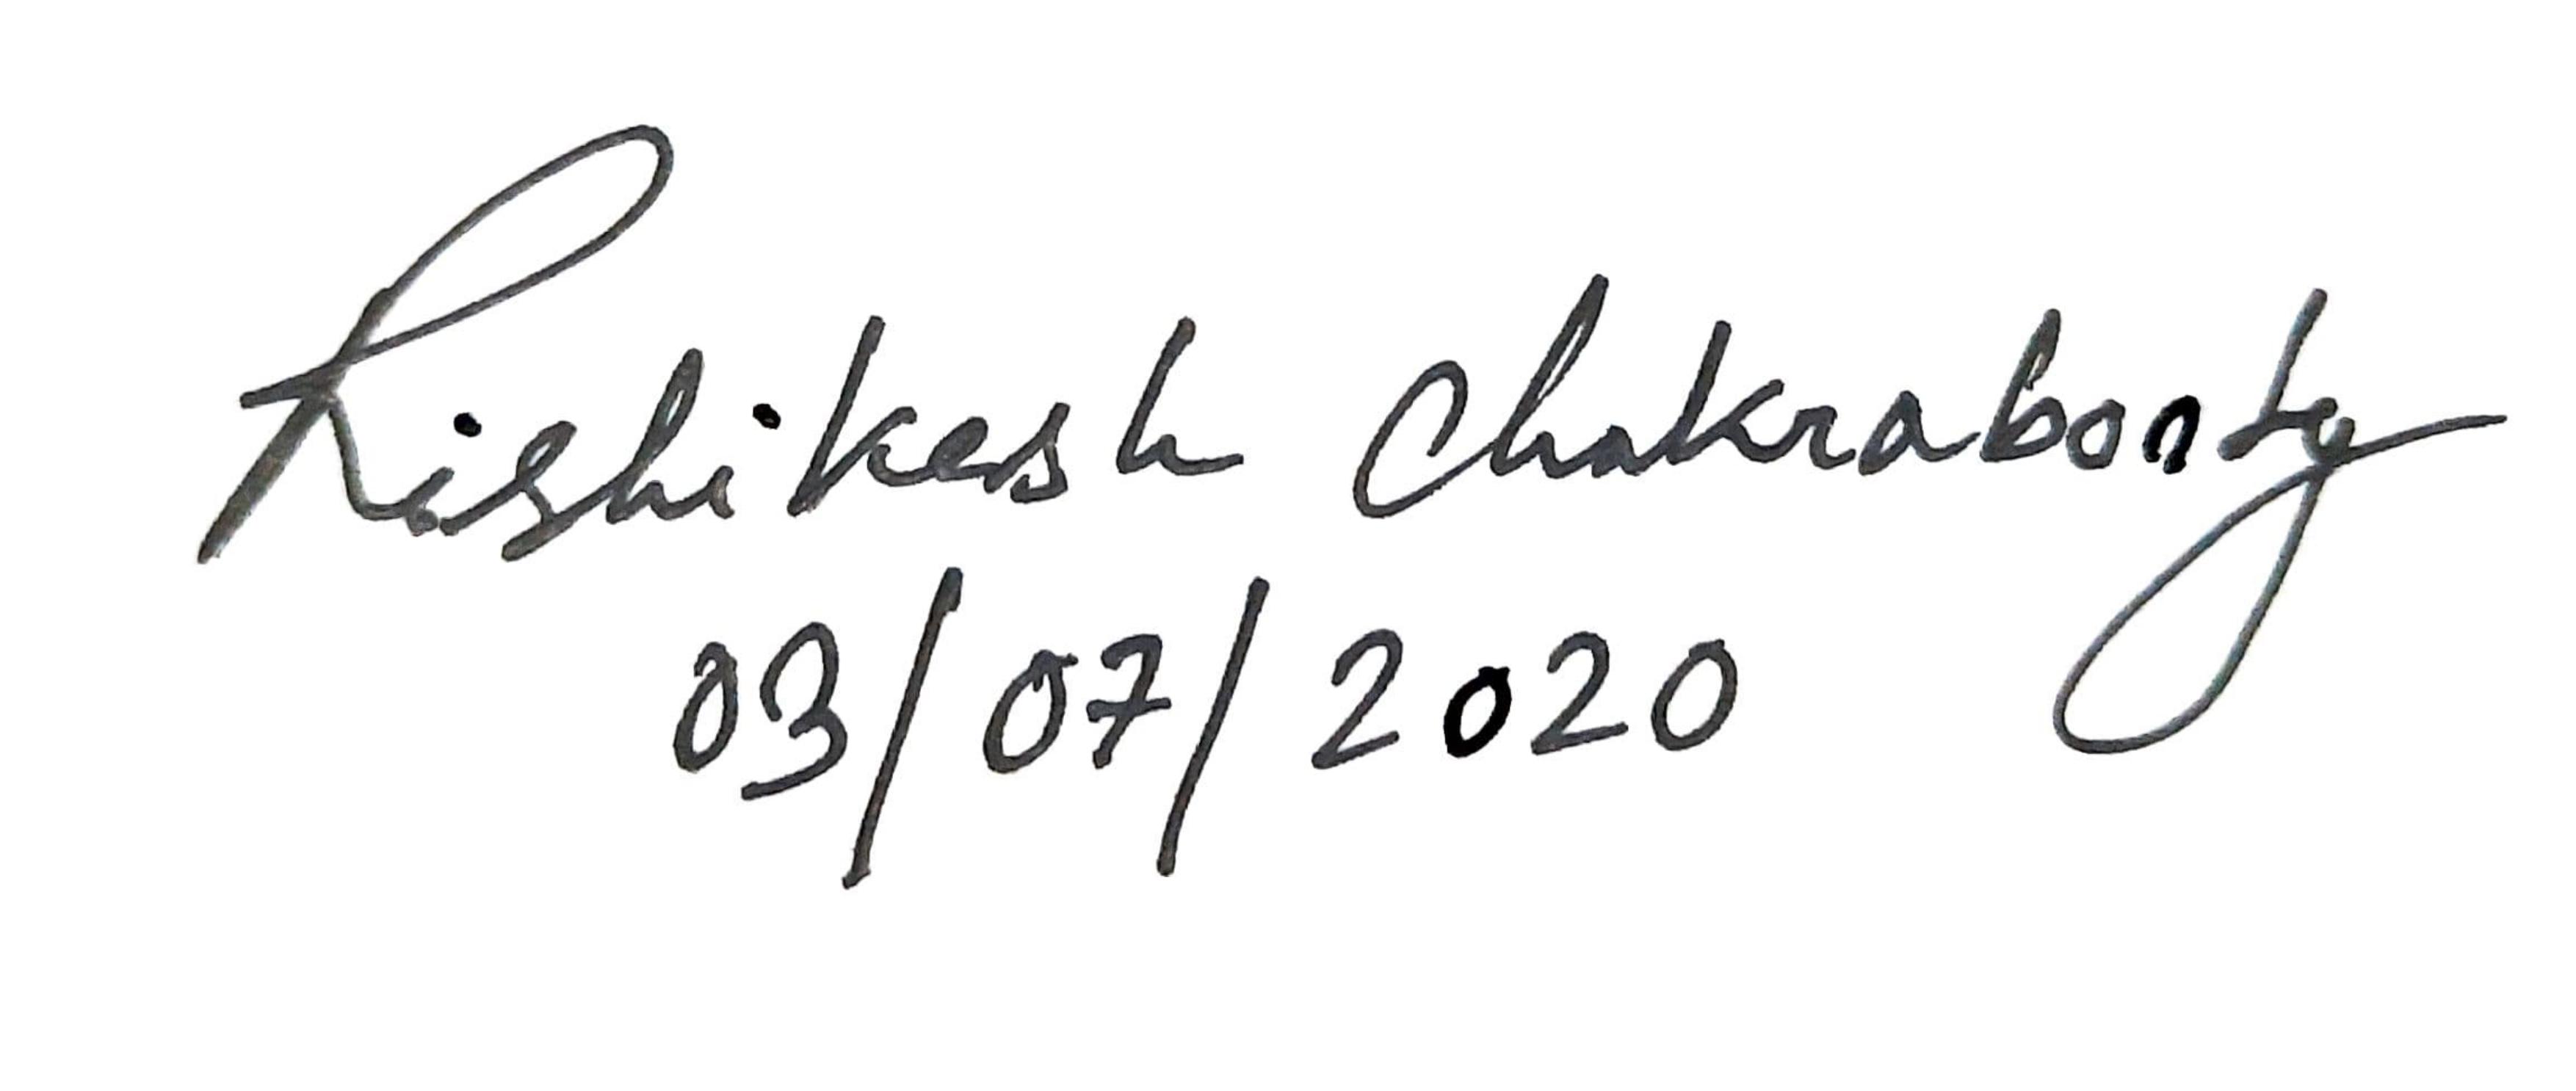 Rishikesh Chakraborty
03/07/2020